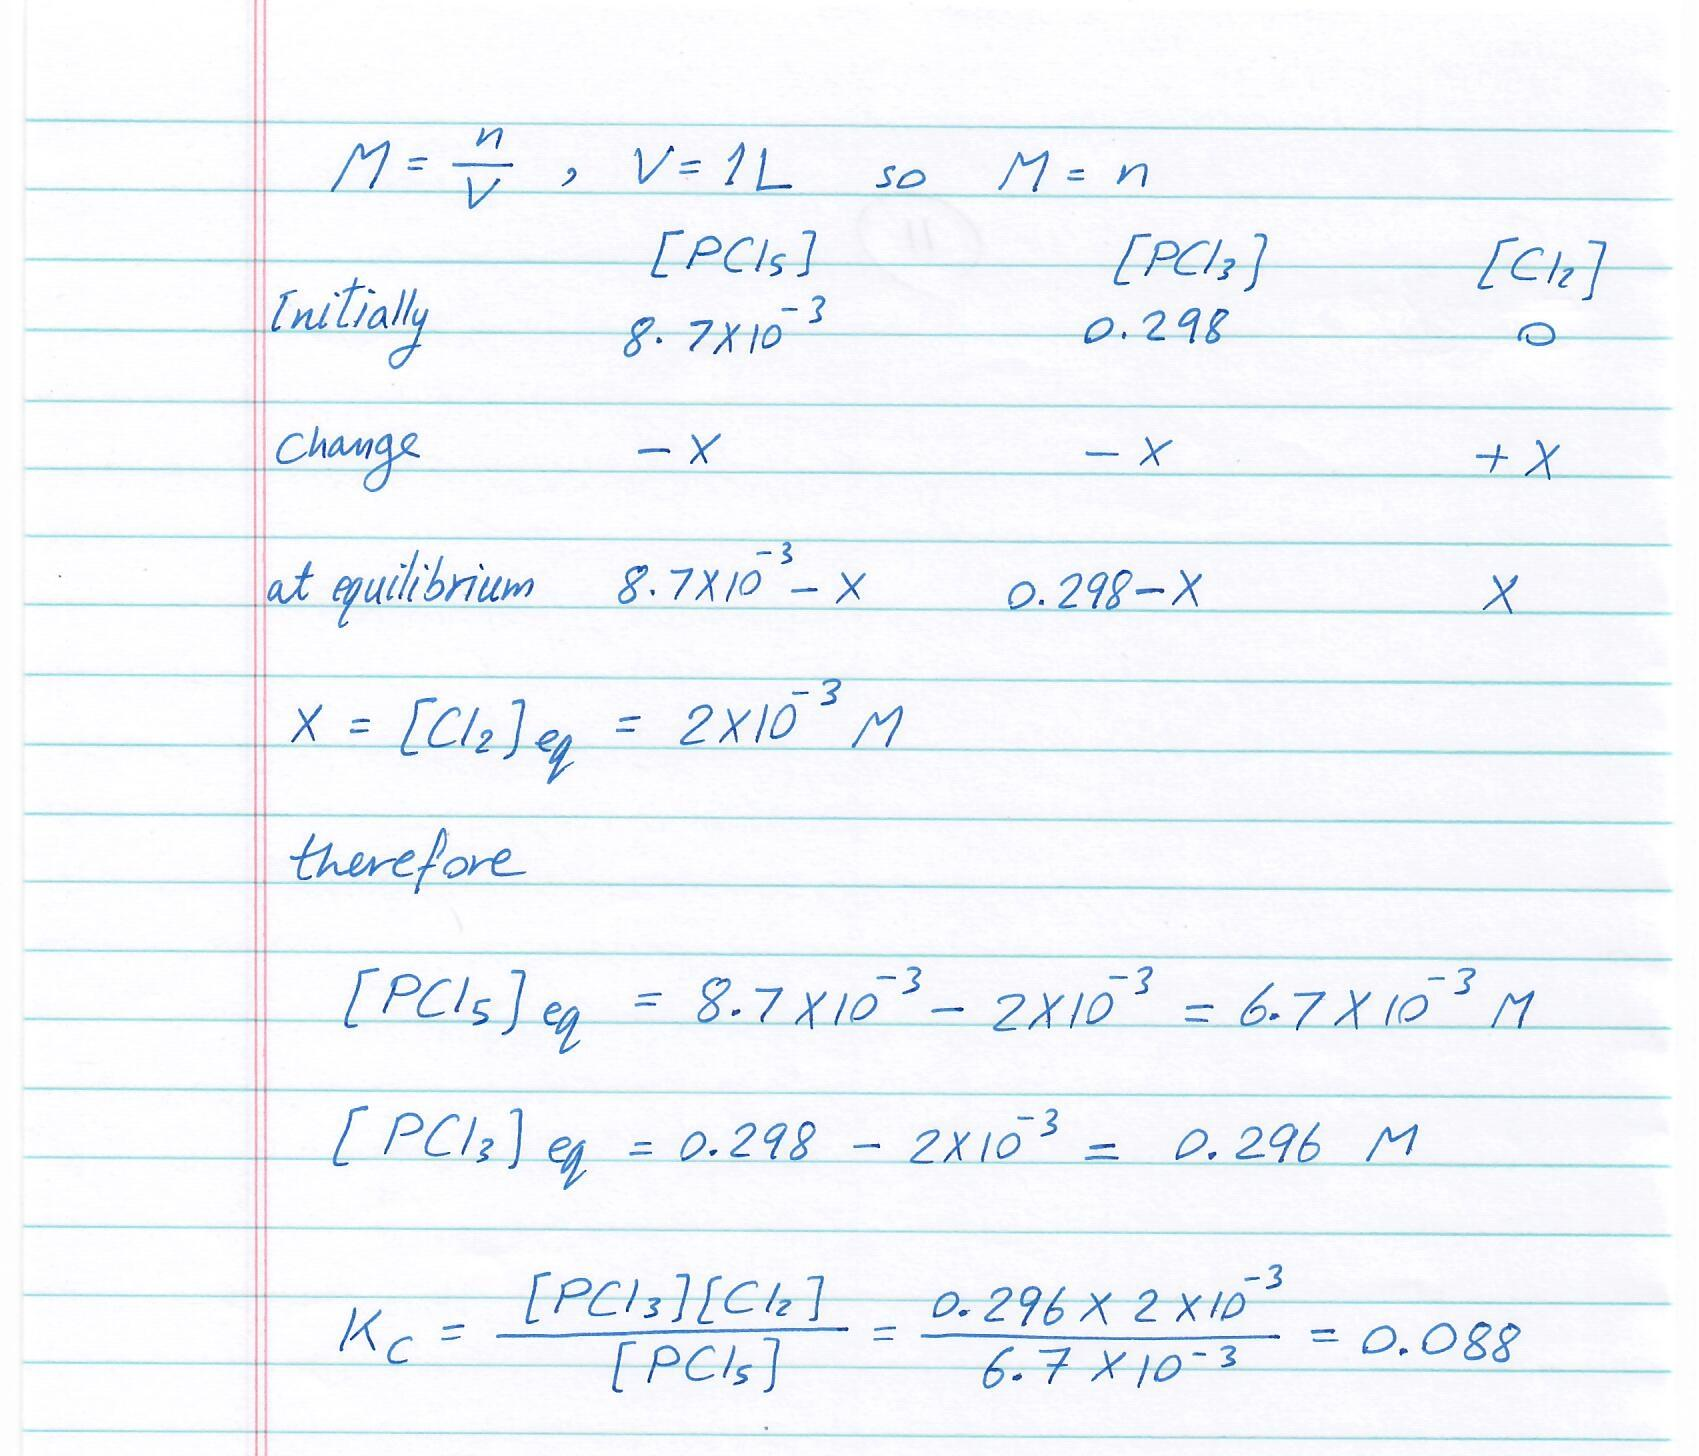 M = n/V , V = 1L so M = n
[PCl₅] [PCl₃] [Cl₂]
Initially 8.7×10⁻³ 0.298 0
Change −X −X +X
at equilibrium 8.7×10⁻³−X 0.298−X X
X = [Cl₂]eq = 2×10⁻³ M
therefore
[PCl₅]eq = 8.7×10⁻³ − 2×10⁻³ = 6.7×10⁻³ M
[PCl₃]eq = 0.298 − 2×10⁻³ = 0.296 M
Kc = [PCl₃][Cl₂]/[PCl₅] = 0.296 × 2×10⁻³/6.7×10⁻³ = 0.088